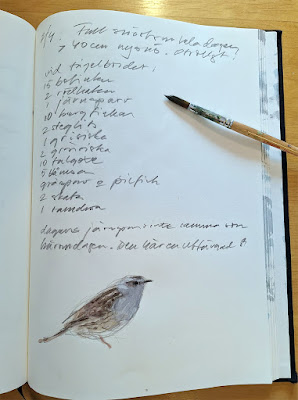 1/4. Full snöstorm hela dagen
> 40 cm nysnö. Otroligt!
vid fågelbordet!
15 bofinkar
2 rödhakar
1 järnsparv
10 bergfinkar
2 steglits
1 gråsiska
2 grönsiska
10 talgoxe
5 blåmes
gråsparv o pilfink
2 skata
1 ramdova
dagens järnsparv inte samma som
häromdagen. Den här en uttärgad